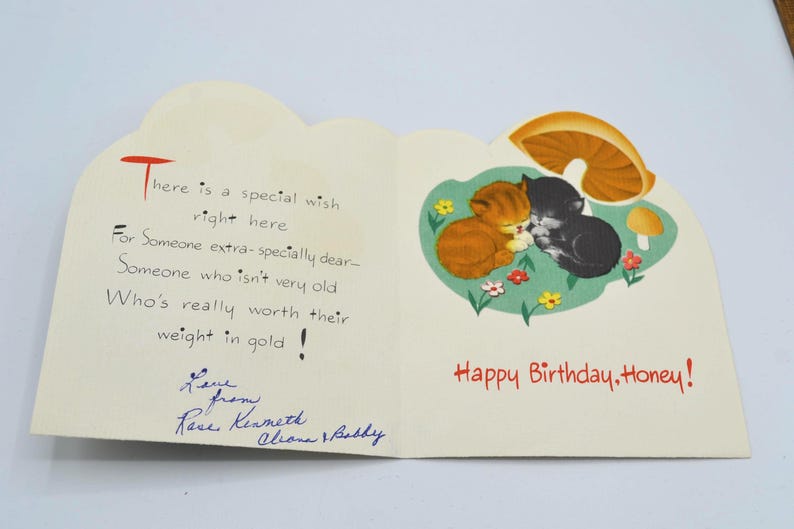 There is a special wish
right here
For Someone extra-specially dear—
Someone who isn't very old
Who's really worth their
weight in gold!
Love
from
Rose Kenneth
Cleona & Bobby
Happy Birthday, Honey!